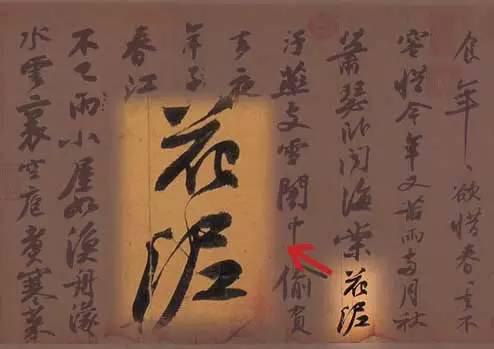 食年〻欲惜春〻去不
容惜今年又苦雨兩月秋
蕭瑟臥聞海棠花泥
汙燕支雪闇中偷負
去夜
年子
春江
花泥
不已雨小屋如漁舟濛
水雲裏空庖煮寒菜